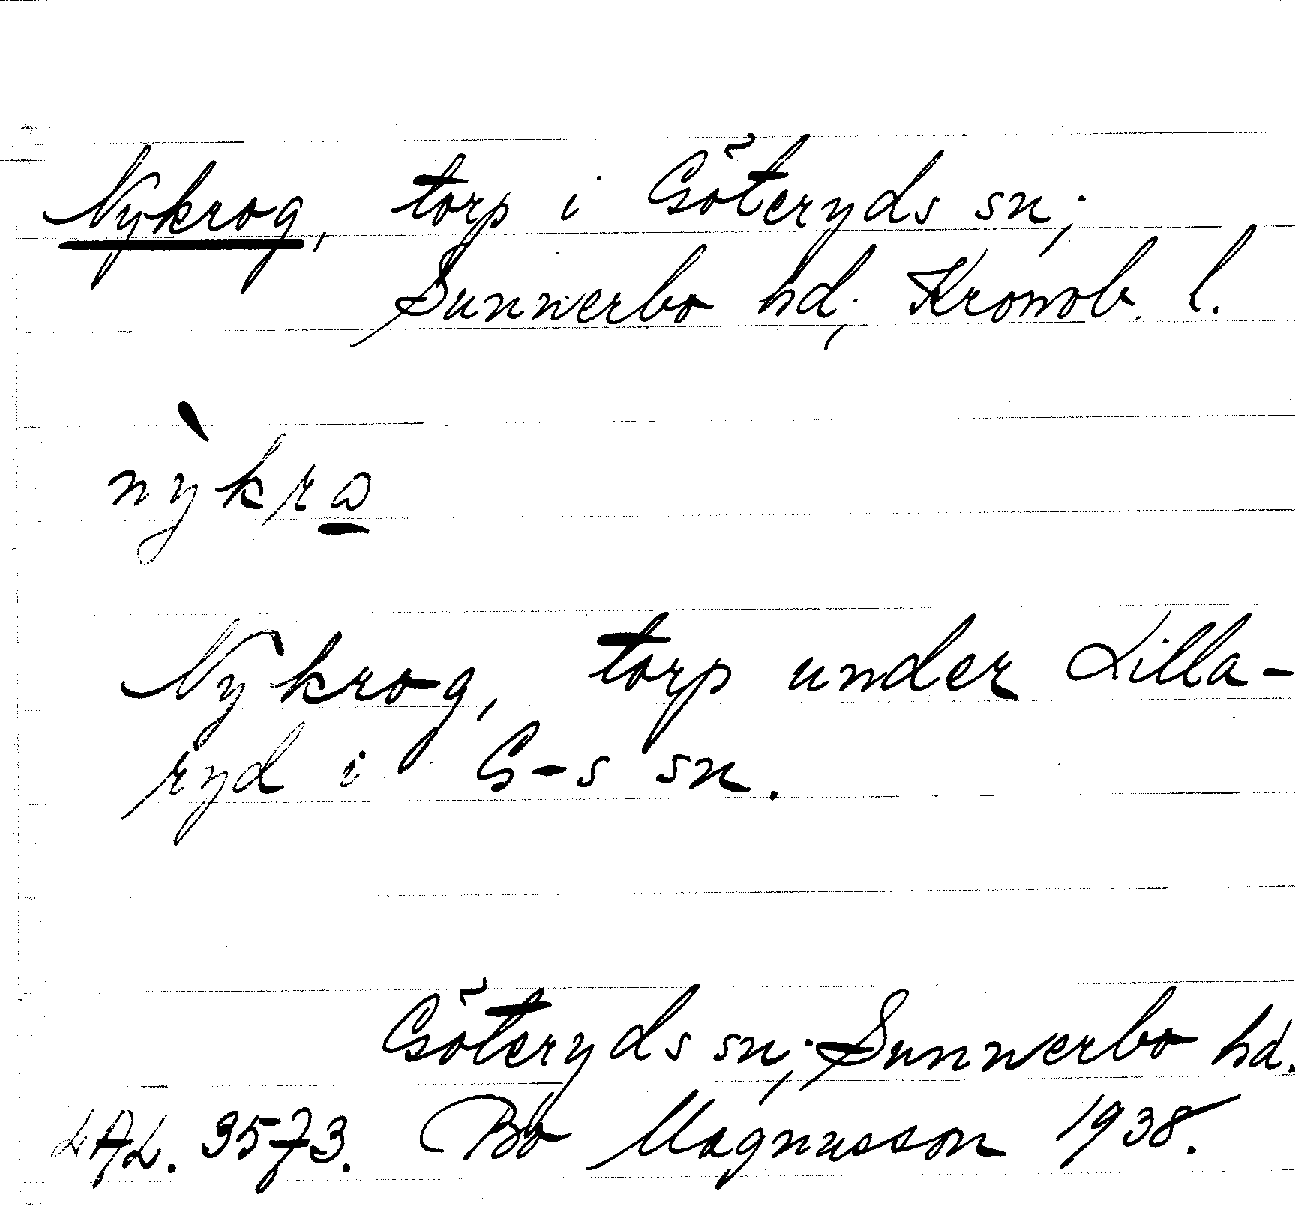 Nykrog, torp i Göteryds sn;
Sunnerbo hd; Kronob. l.
nỳkrɷ
Nykrog, torp under Lilla-
ryd i G-s sn.
Göteryds sn; Sunnerbo hd.
LAL. 3573. Bo Magnusson 1938.